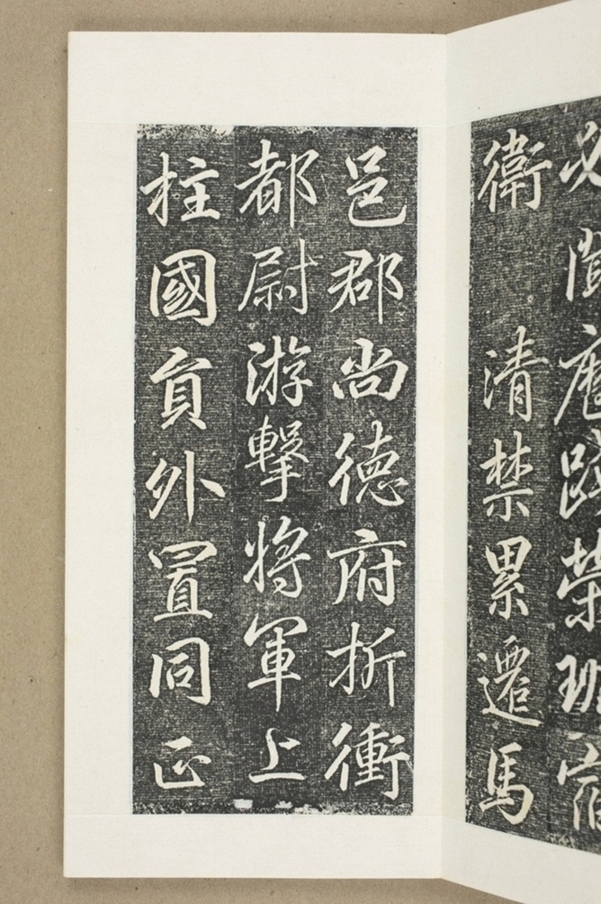 歷踐榮班宿
衛 清禁累遷馬
邑郡尚德府折衝
都尉游擊將軍上
柱國員外置同正